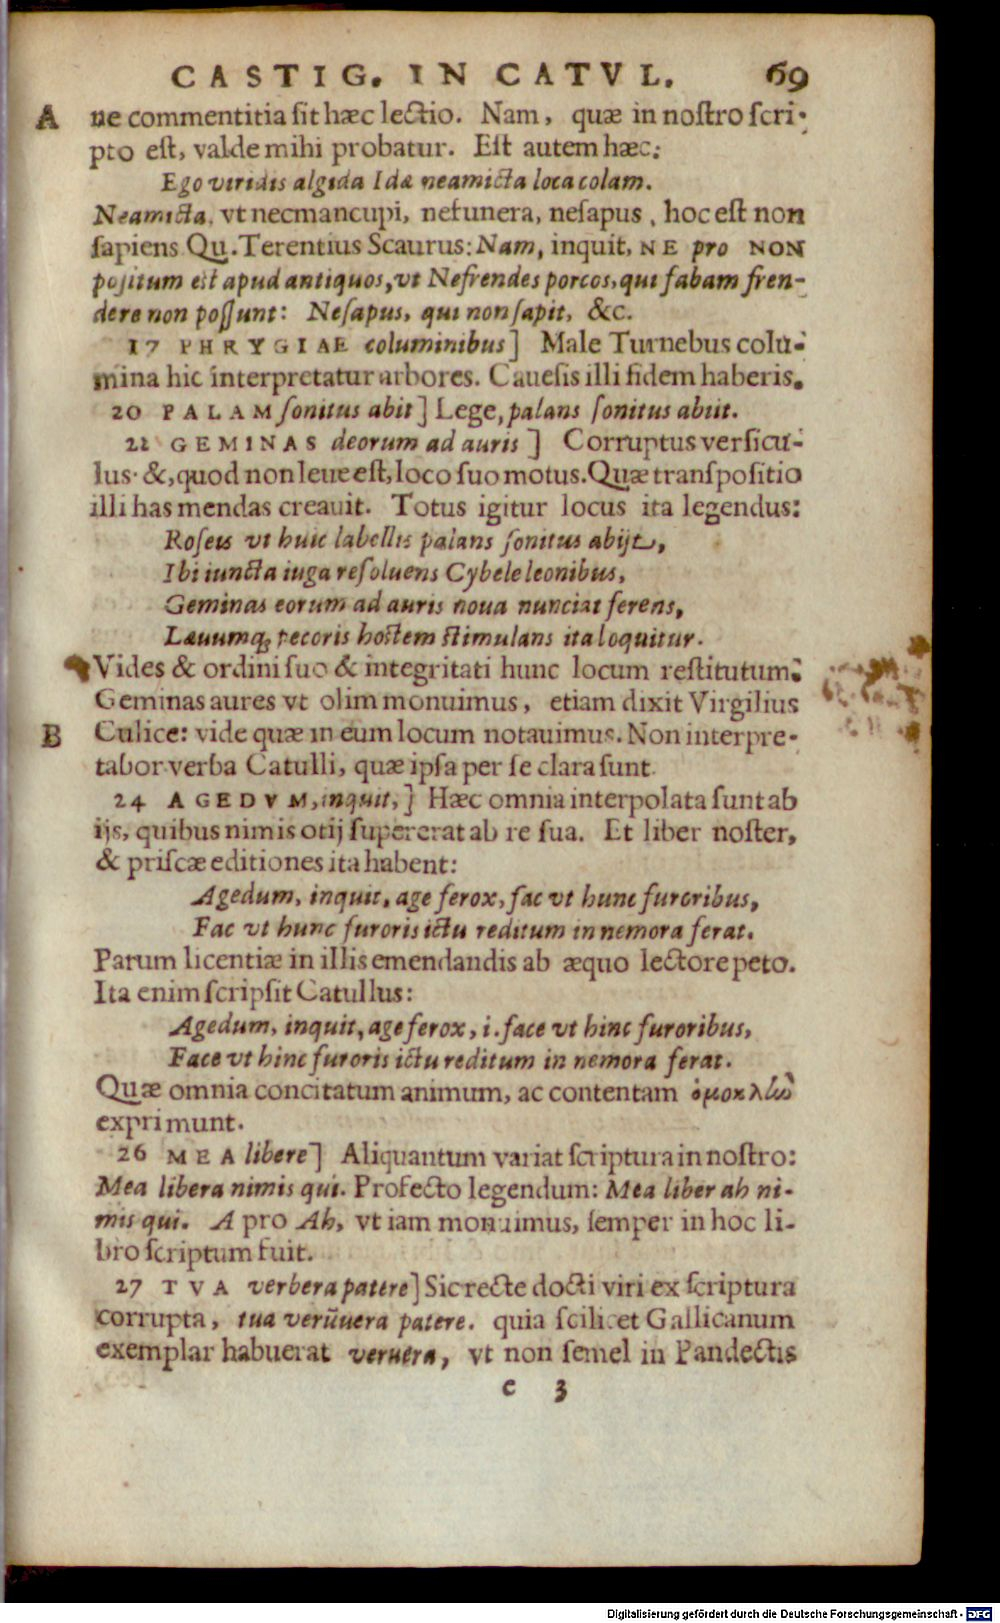 CASTIG. IN CATVL. 69
A ne commentitia sit hæc lectio. Nam, quæ in nostro scri-
pto est, valde mihi probatur. Est autem hæc:
Ego viridis algida Idæ neamicta loca colam.
Neamicta, vt necmancupi, nefunera, nesapus, hoc est non
sapiens Qu. Terentius Scaurus: Nam, inquit, NE pro NON
positum est apud antiquos, vt Nefrendes porcos, qui fabam fren-
dere non possunt: Nesapus, qui non sapit, &c.
17 PHRYGIAE columinibus] Male Turnebus colu-
mina hic interpretatur arbores. Cauesis illi fidem haberis.
20 PALAM sonitus abit] Lege, palans sonitus abiit.
22 GEMINAS deorum ad auris] Corruptus versicu-
lus. &, quod non leue est, loco suo motus. Quæ transpositio
illi has mendas creauit. Totus igitur locus ita legendus:
Roseis vt huic labellis palans sonitus abijt,
Ibi iuncta iuga resoluens Cybele leonibus,
Geminas eorum ad auris noua nunciat ferens,
Læuumq; pecoris hostem stimulans ita loquitur.
Vides & ordini suo & integritati hunc locum restitutum.
Geminas aures vt olim monuimus, etiam dixit Virgilius
B Culice: vide quæ in eum locum notauimus. Non interpre-
tabor verba Catulli, quæ ipsa per se clara sunt.
24 AGEDVM, inquit,] Hæc omnia interpolata sunt ab
ijs, quibus nimis otij supererat ab re sua. Et liber noster,
& priscæ editiones ita habent:
Agedum, inquit, age ferox, fac vt hunc furoribus,
Fac vt hunc furoris ictu reditum in nemora ferat.
Parum licentiæ in illis emendandis ab æquo lectore peto.
Ita enim scripsit Catullus:
Agedum, inquit, age ferox, i. face vt hinc furoribus,
Face vt hinc furoris ictu reditum in nemora ferat.
Quæ omnia concitatum animum, ac contentam ὁμοκλὼ
exprimunt.
26 MEA libere] Aliquantum variat scriptura in nostro:
Mea libera nimis qui. Profecto legendum: Mea liber ah ni-
mis qui. A pro Ah, vt iam monuimus, semper in hoc li-
bro scriptum fuit.
27 TVA verbera patere] Sic recte docti viri ex scriptura
corrupta, tua verũuera patere. quia scilicet Gallicanum
exemplar habuerat veruera, vt non semel in Pandectis
e 3
Digitalisierung gefördert durch die Deutsche Forschungsgemeinschaft - DFG